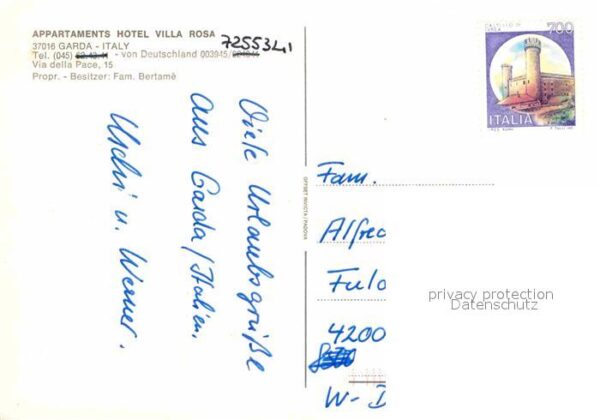 APPARTAMENTS HOTEL VILLA ROSA
37016 GARDA - ITALY
7255341
Tel. (045) - von Deutschland 003945/
Via della Pace, 15
Propr. - Besitzer: Fam. Bertamè
Viele Urlaubsgrüße
aus Garda/Italien.
Uschi u. Werner.
OFFSET INVICTA / PADOVA
700
ITALIA
Fam.
Alfred
Ful
4200
W-D
privacy protection
Datenschutz